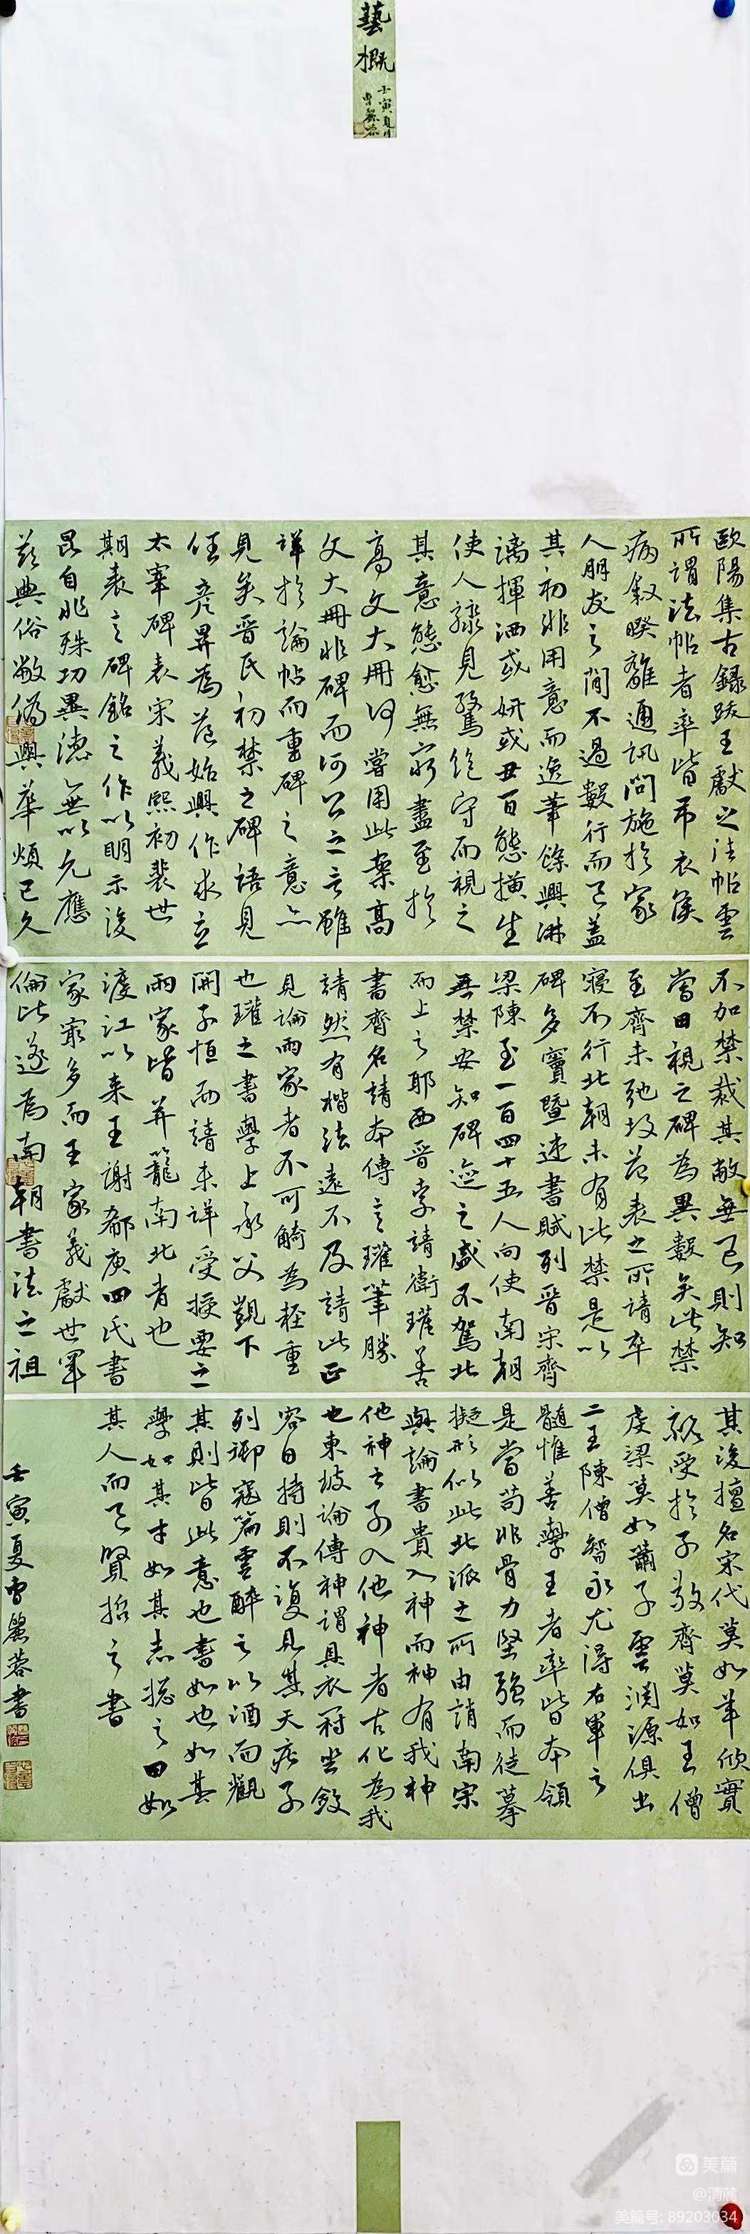 藝概
壬寅夏月
曹麗蓉
歐陽集古錄跋王獻之法帖雲
所謂法帖者率皆吊哀候
病敘睽離通訊問施於家
人朋友之間不過數行而已蓋
其初非用意而逸筆餘興淋
漓揮洒或妍或丑百態橫生
使人驟見驚絕守而視之
其意態愈無窮盡至於
高文大冊何嘗用此案高
文大冊非碑而何公之言雖
詳於論帖而重碑之意亦
見矣晉氏初禁之碑語見
任彥昇為范始興作求立
太宰碑表宋義熙初裴世
期表言碑銘之作以明示後
昆自非殊功異德無以允應
茲典俗敝偽興華煩已久
不加禁裁其敝無已則知
當日視之碑為異數矣此禁
至齊未弛故范表之所請卒
寢不行北朝未有此禁是以
碑多竇臮述書賦列晉宋齊
梁陳至一百四十五人向使南朝
無禁安知碑迹之盛不駕北
而上之耶西晉索靖衛瓘善
書齊名靖本傳言瓘筆勝
靖然有楷法遠不及靖此正
見論兩家者不可觭為輕重
也瓘之書學上承父覬下
開子恒而靖未詳受授要之
兩家皆并籠南北者也
渡江以來王謝郗庾四氏書
家最多而王家羲獻世罕
倫比遂為南朝書法之祖
其後擅名宋代莫如羊欣實
親受於子敬齊莫如王僧
虔梁莫如蕭子雲淵源俱出
二王陳僧智永尤得右軍之
髓惟善學王者率皆本領
是當苟非骨力堅強而徒摹
擬形似此北派之所由誚南宋
與論書貴入神而神有我神
他神之別入他神者古化為我
也東坡論傳神謂具衣冠坐斂
容自持則不復見其天莊子
列御寇篇雲醉之以酒而觀
其則皆此意也書如也如其
學如其才如其志總之曰如
其人而已賢哲之書
壬寅夏曹麗蓉書
美篇
@清蓉
美篇号: 89203034